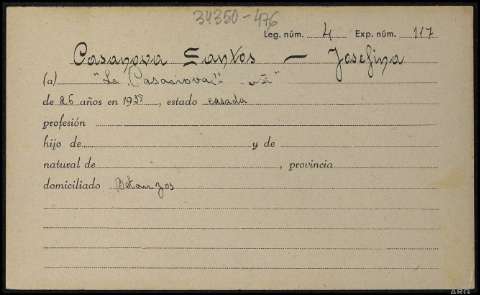 34350-476
Leg. núm. 4 Exp. núm. 117
Casanova Santos — Josefina
(a) "La Casanova"
de 26 años en 1935, estado casada
profesión
hijo de y de
natural de , provincia
domiciliado Betanzos